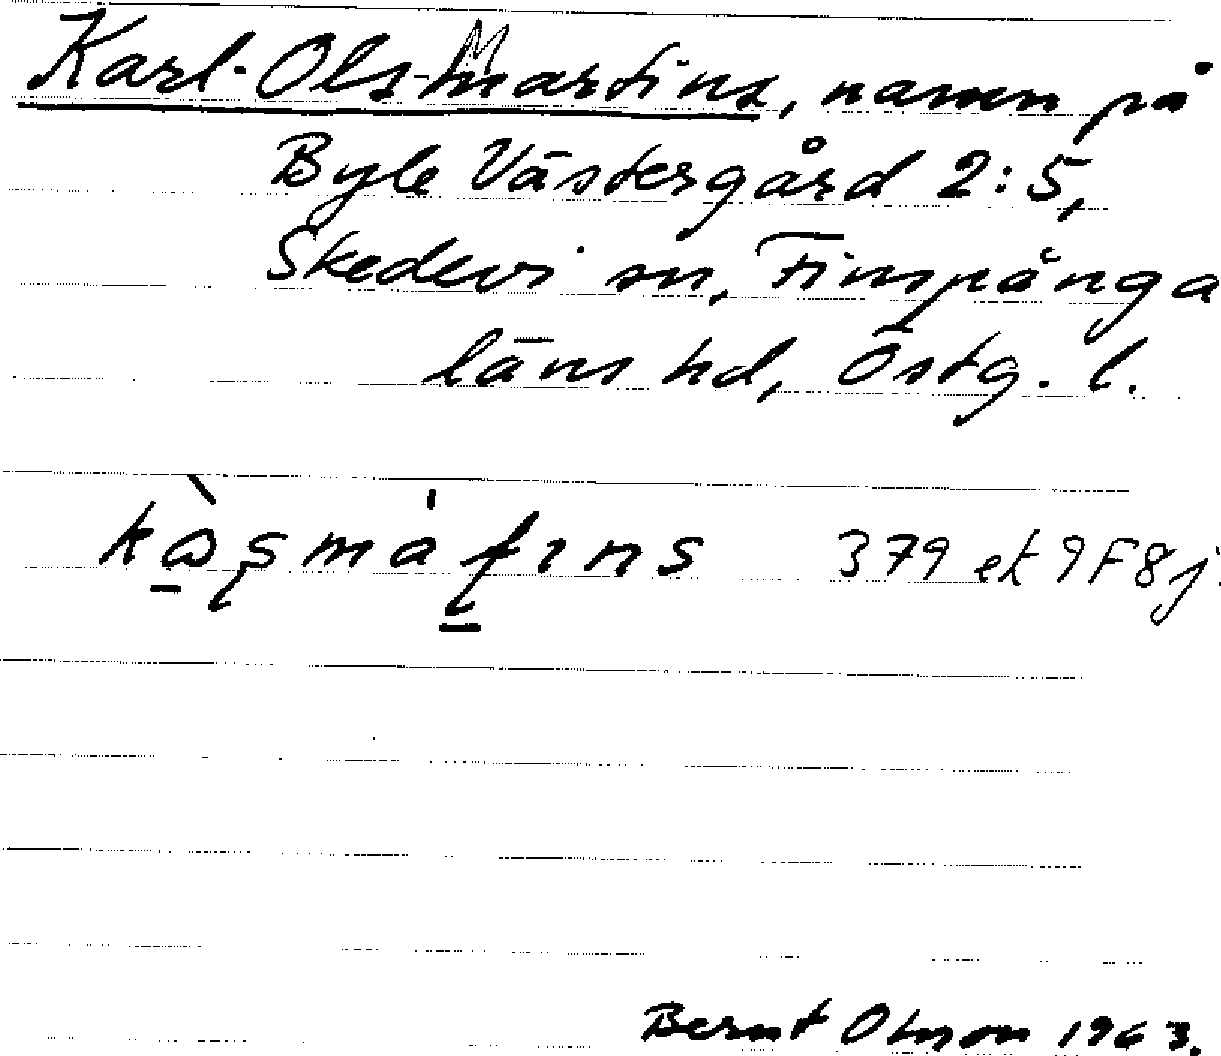 Karl-Ols-Martins, namn på
Byle Västergård 2:5,
Skedevi sn, Finspånga
läns hd, Östg. l.
379 et 9F8j.
Bernt Olsson 1963.